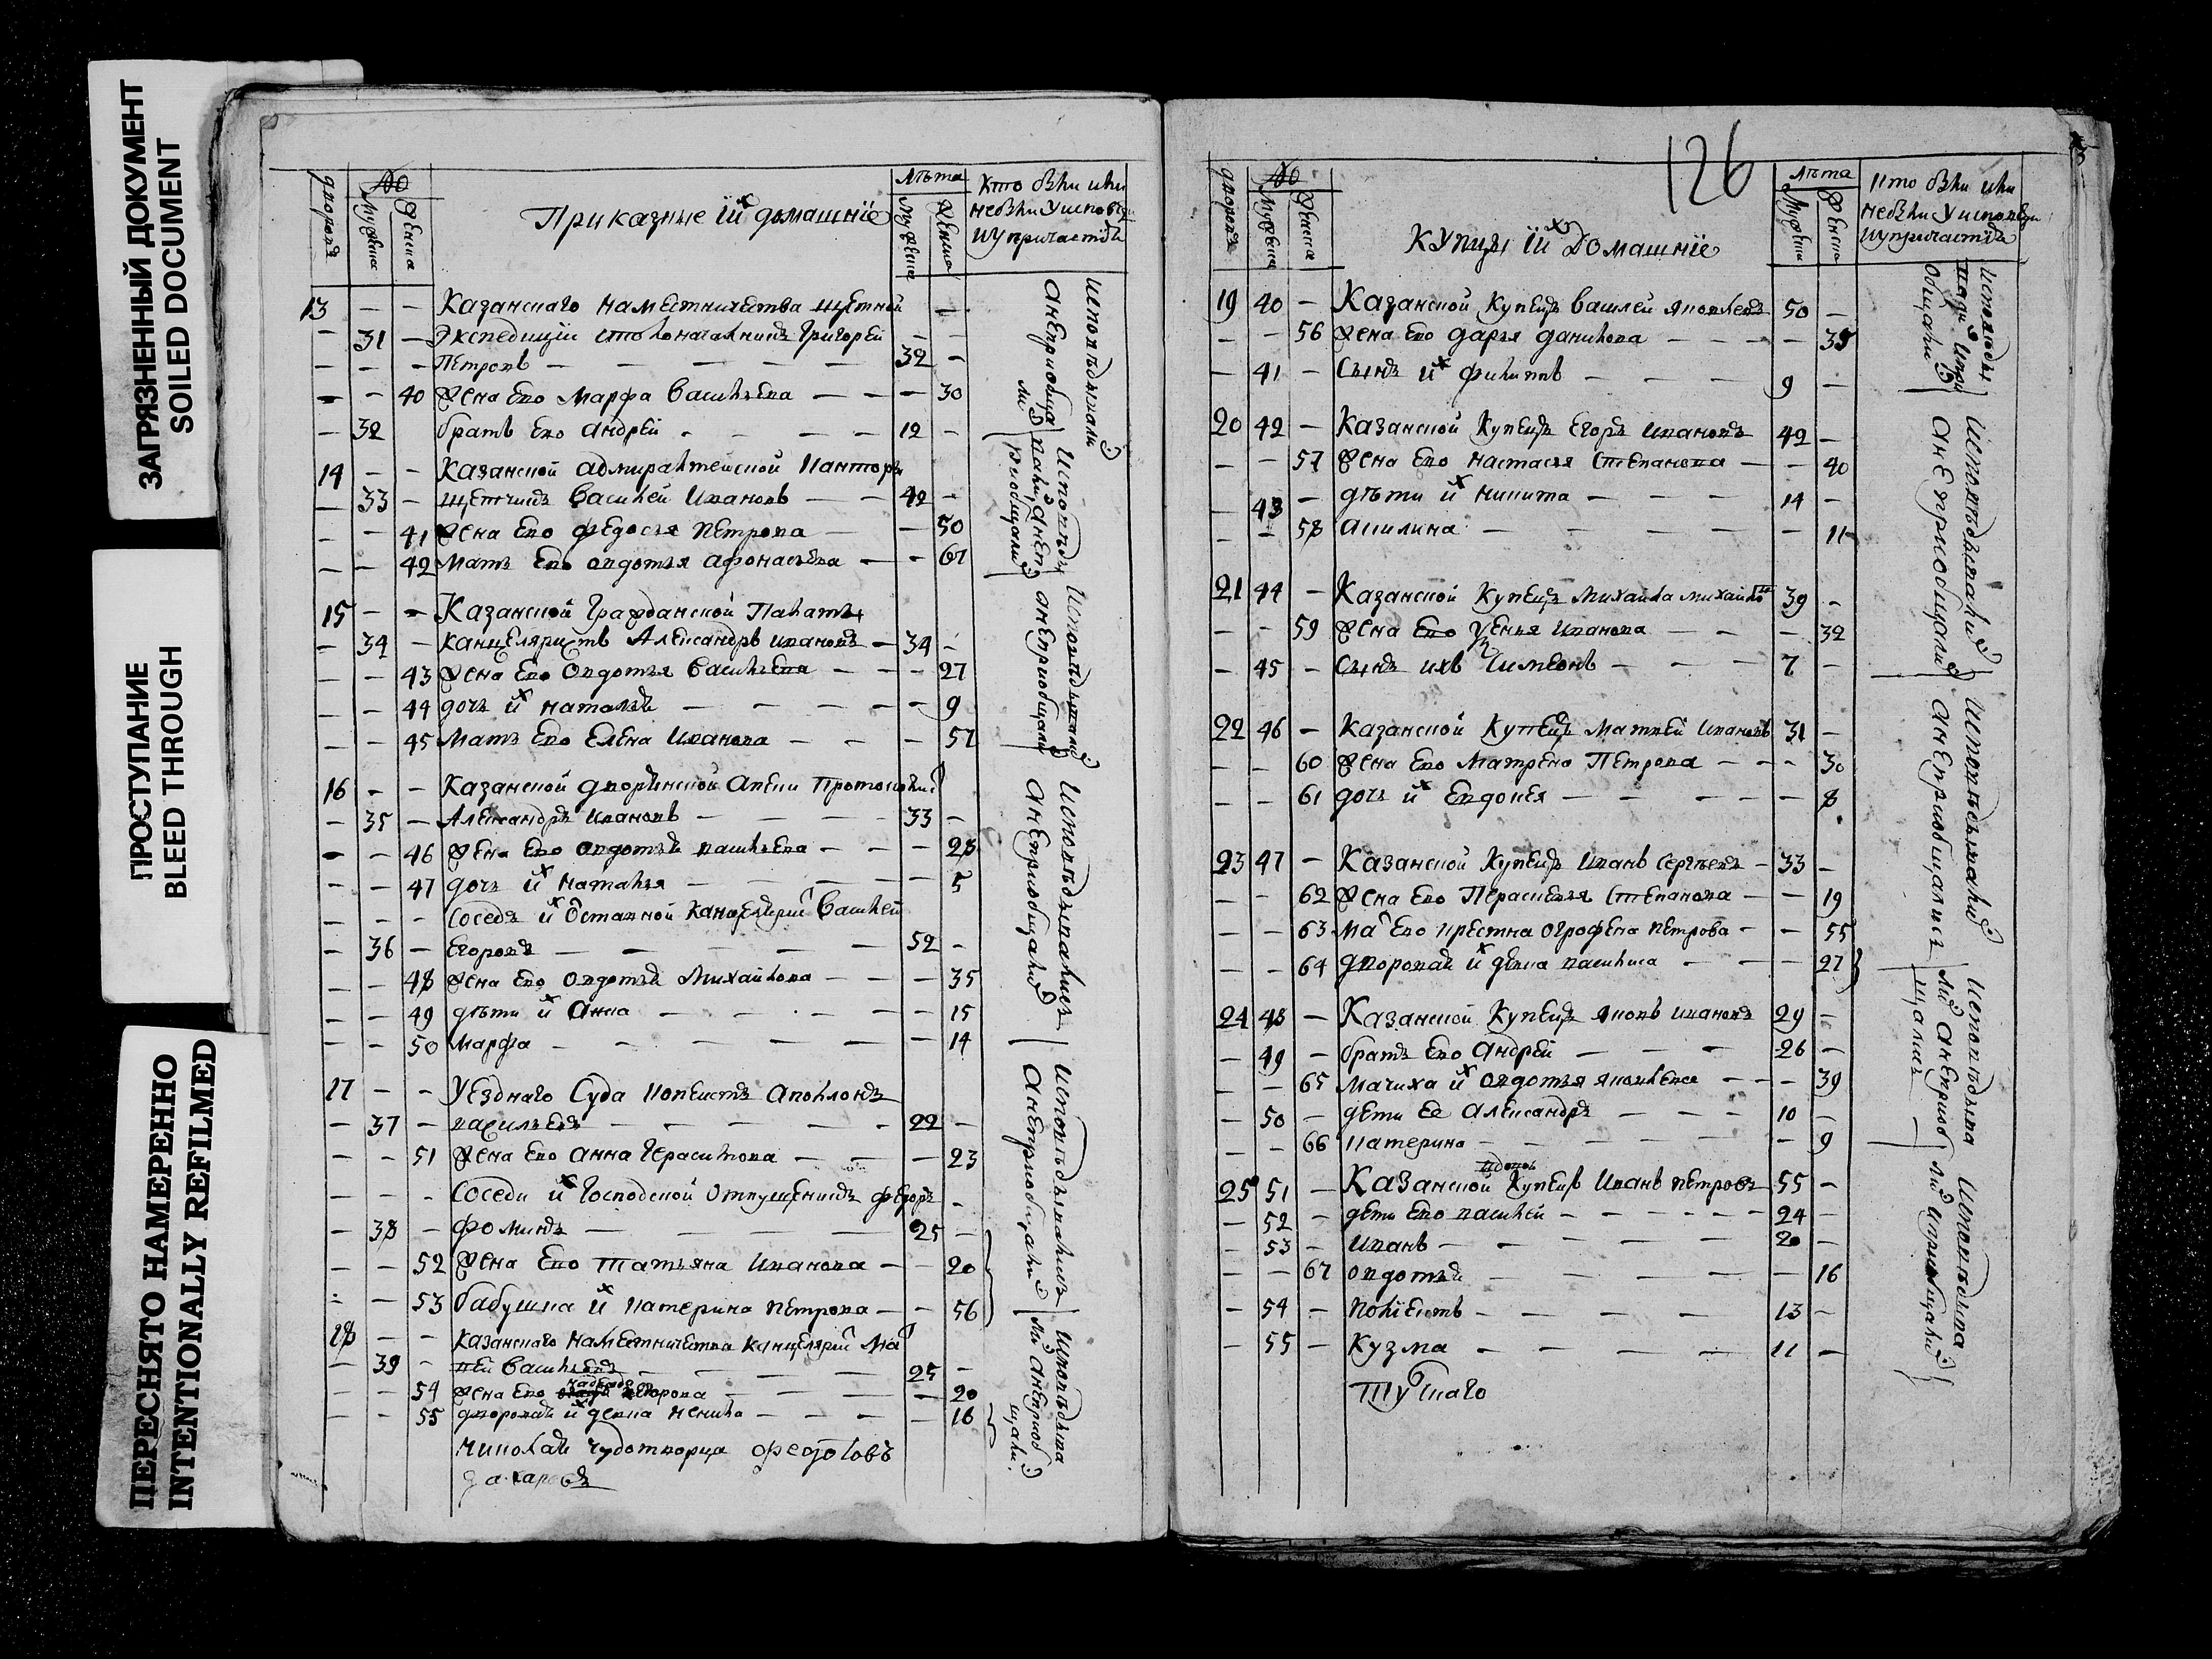 ЗАГРЯЗНЕННЫЙ ДОКУМЕНТ
SOILED DOCUMENT
ПРОСТУПАНИЕ
BLEED THROUGH
ПЕРЕСНЯТО НАМЕРЕННО
INTENTIONALLY REFILMED
дворовъ
№
мужеска
женска
Приказные и их домашнїе
Лѣта
мужеска
женска
Кто были или
не были у исповѣди
и у причастїя
13 - - Казанскаго наместничества щетной -
- 31 - Экспедицїи столоначалникъ Григорей - -
- - - Петровъ - 32 -
- - 40 Жена ево Марфа Васильева - 30
- 32 братъ ево Андрей - 12 -
14 - - Казанской адмиралтейской канторы
- 33 - щетчикъ Василей Ивановъ - 42 -
- - 41 Жена ево Федосья Петрова - 50
- - 42 Мать ево Овдотья Афонасьева - 61
15 - - Казанской Гражданской Палаты
- 34 - канцеляристъ Александръ Ивановъ - 34 -
- - 43 Жена ево Овдотья Васильева - 27
- - 44 дочь их Наталья - 9
- - 45 Мать ево Елена Иванова - 57
16 - - Казанской дворянской опеки протоколис
- 35 - Александръ Ивановъ - 33 -
- - 46 Жена ево Овдотья Васильева - 28
- - 47 дочь их Наталья - 5
- - - Соседъ их отставной канцелярис Василей
- 36 - Егоровъ - 52 -
- - 48 Жена ево Овдотья Михайлова - 35
- - 49 дѣти их Анна - 15
- - 50 Марфа - 14
17 - - Уезднаго Суда копеистъ Аполлонъ
- 37 - Васильевъ - 22 -
- - 51 Жена ево Анна Герасимова - 23
- - - Соседи их Господской отпущеникъ Федоръ -
- 38 - Фоминъ - 25 -
- - 52 Жена ево Татьяна Иванова - 20
- - 53 бабушка их Катерина Петрова - 56
18 - - Казанскаго наместничества канцелярис Мат
- 39 - вей Васильевъ - 25 -
- - 54 Жена ево Егорова - 20
- - 55 дворовая их девка Ненила - 16
Николая Чудотворца Федотовъ
Захаровъ
Исповѣдывались
а не приобщались
126
дворовъ
№
мужеска
женска
Купцы и их домашнїе
Лѣта
мужеска
женска
Кто были или
не были у исповеди
и у причастїя
19 40 - Казанской купецъ Василей Яковлевъ 50 -
- - 56 Жена ево Дарья Данилова - 35
- 41 - Сынъ их Филиппъ - 9 -
20 42 - Казанской купецъ Егоръ Ивановъ 42 -
- - 57 Жена ево Настасья Степанова - 40
- 43 - дѣти их Никита - 14 -
- - 58 Акилина - 11
21 44 - Казанской купецъ Михайла Михайло 39 -
- - 59 Жена ево Иванова - 32
- 45 - Сынъ ихъ Симеонъ - 7 -
22 46 - Казанской купецъ Матвей Ивановъ 31 -
- - 60 Жена ево Матрена Петрова - 30
- - 61 дочь их Евдокея - 8
23 47 - Казанской купецъ Иванъ Сергѣевъ - 33 -
- - 62 Жена ево Парасковья Степанова - 19
- - 63 Ма ево крестна Огрофена Петрова - 55
- - 64 дворовая их девка Василиса - 27
24 48 - Казанской купецъ Яковъ Ивановъ 29 -
- 49 - братъ ево Андрей - 26 -
- - 65 Мачиха их Овдотья Яковлева - 39
- 50 - дети ее Александръ - 10 -
- - 66 Катерина - 9
вдовъ
25 51 - Казанской купецъ Иванъ Петровъ 55 -
- 52 - дети ево Василей - 24 -
- 53 - Иванъ - 20 -
- - 67 Овдотья - 16
- 54 - Полїектъ - 13 -
- 55 - Кузма - 11 -
Исповѣдывались
а не приобщались